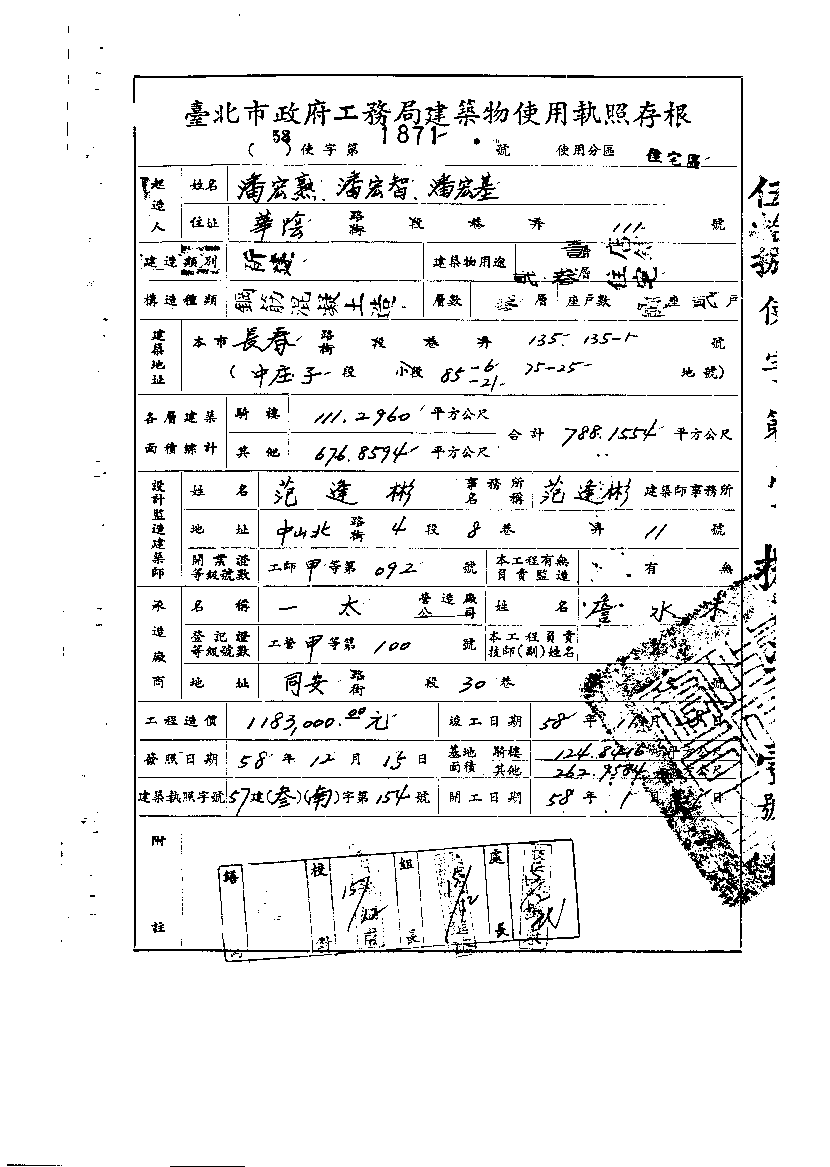 臺北市政府工務局建築物使用執照存根
(58)使字第1871號 使用分區 住宅區
起造人 姓名 潘宏熟、潘宏智、潘宏基
住址 華陰 路街 段 巷 弄 111 號
建造類別 新建 建築物用途 店 住宅
構造種類 鋼筋混凝土造 層數 層 座戶數 座 戶
建築地址 本市長春 路街 段 巷 弄 135. 135-1 號
(中庄子 段 小段 85-6 -21 75-25 地號)
各層建築面積總計 騎樓 111.2960 平方公尺 合計 788.1554 平方公尺
其他 676.8594 平方公尺
設計監造建築師 姓名 范逢彬 事務所名稱 范逢彬 建築師事務所
地址 中山北 路街 4 段 8 巷 弄 11 號
開業證等級號數 工師甲等第092號 本工程有無負責監造 有 無
承造廠商 名稱 一太 營造廠公司 姓名 詹水
登記證等級號數 工營甲等第100號 本工程負責技師(副)姓名
地址 同安 路街 段 30 巷 號
工程造價 1183,000.00元 竣工日期 58年 月 日
發照日期 58年12月15日 基地面積 騎樓 124.8216 平方公尺
其他 262.9584 平方公尺
建築執照字號 57建(叁)(南)字第154號 開工日期 58年1月 日
附註
繕 校對 組長 處長
伍捌使字第 號